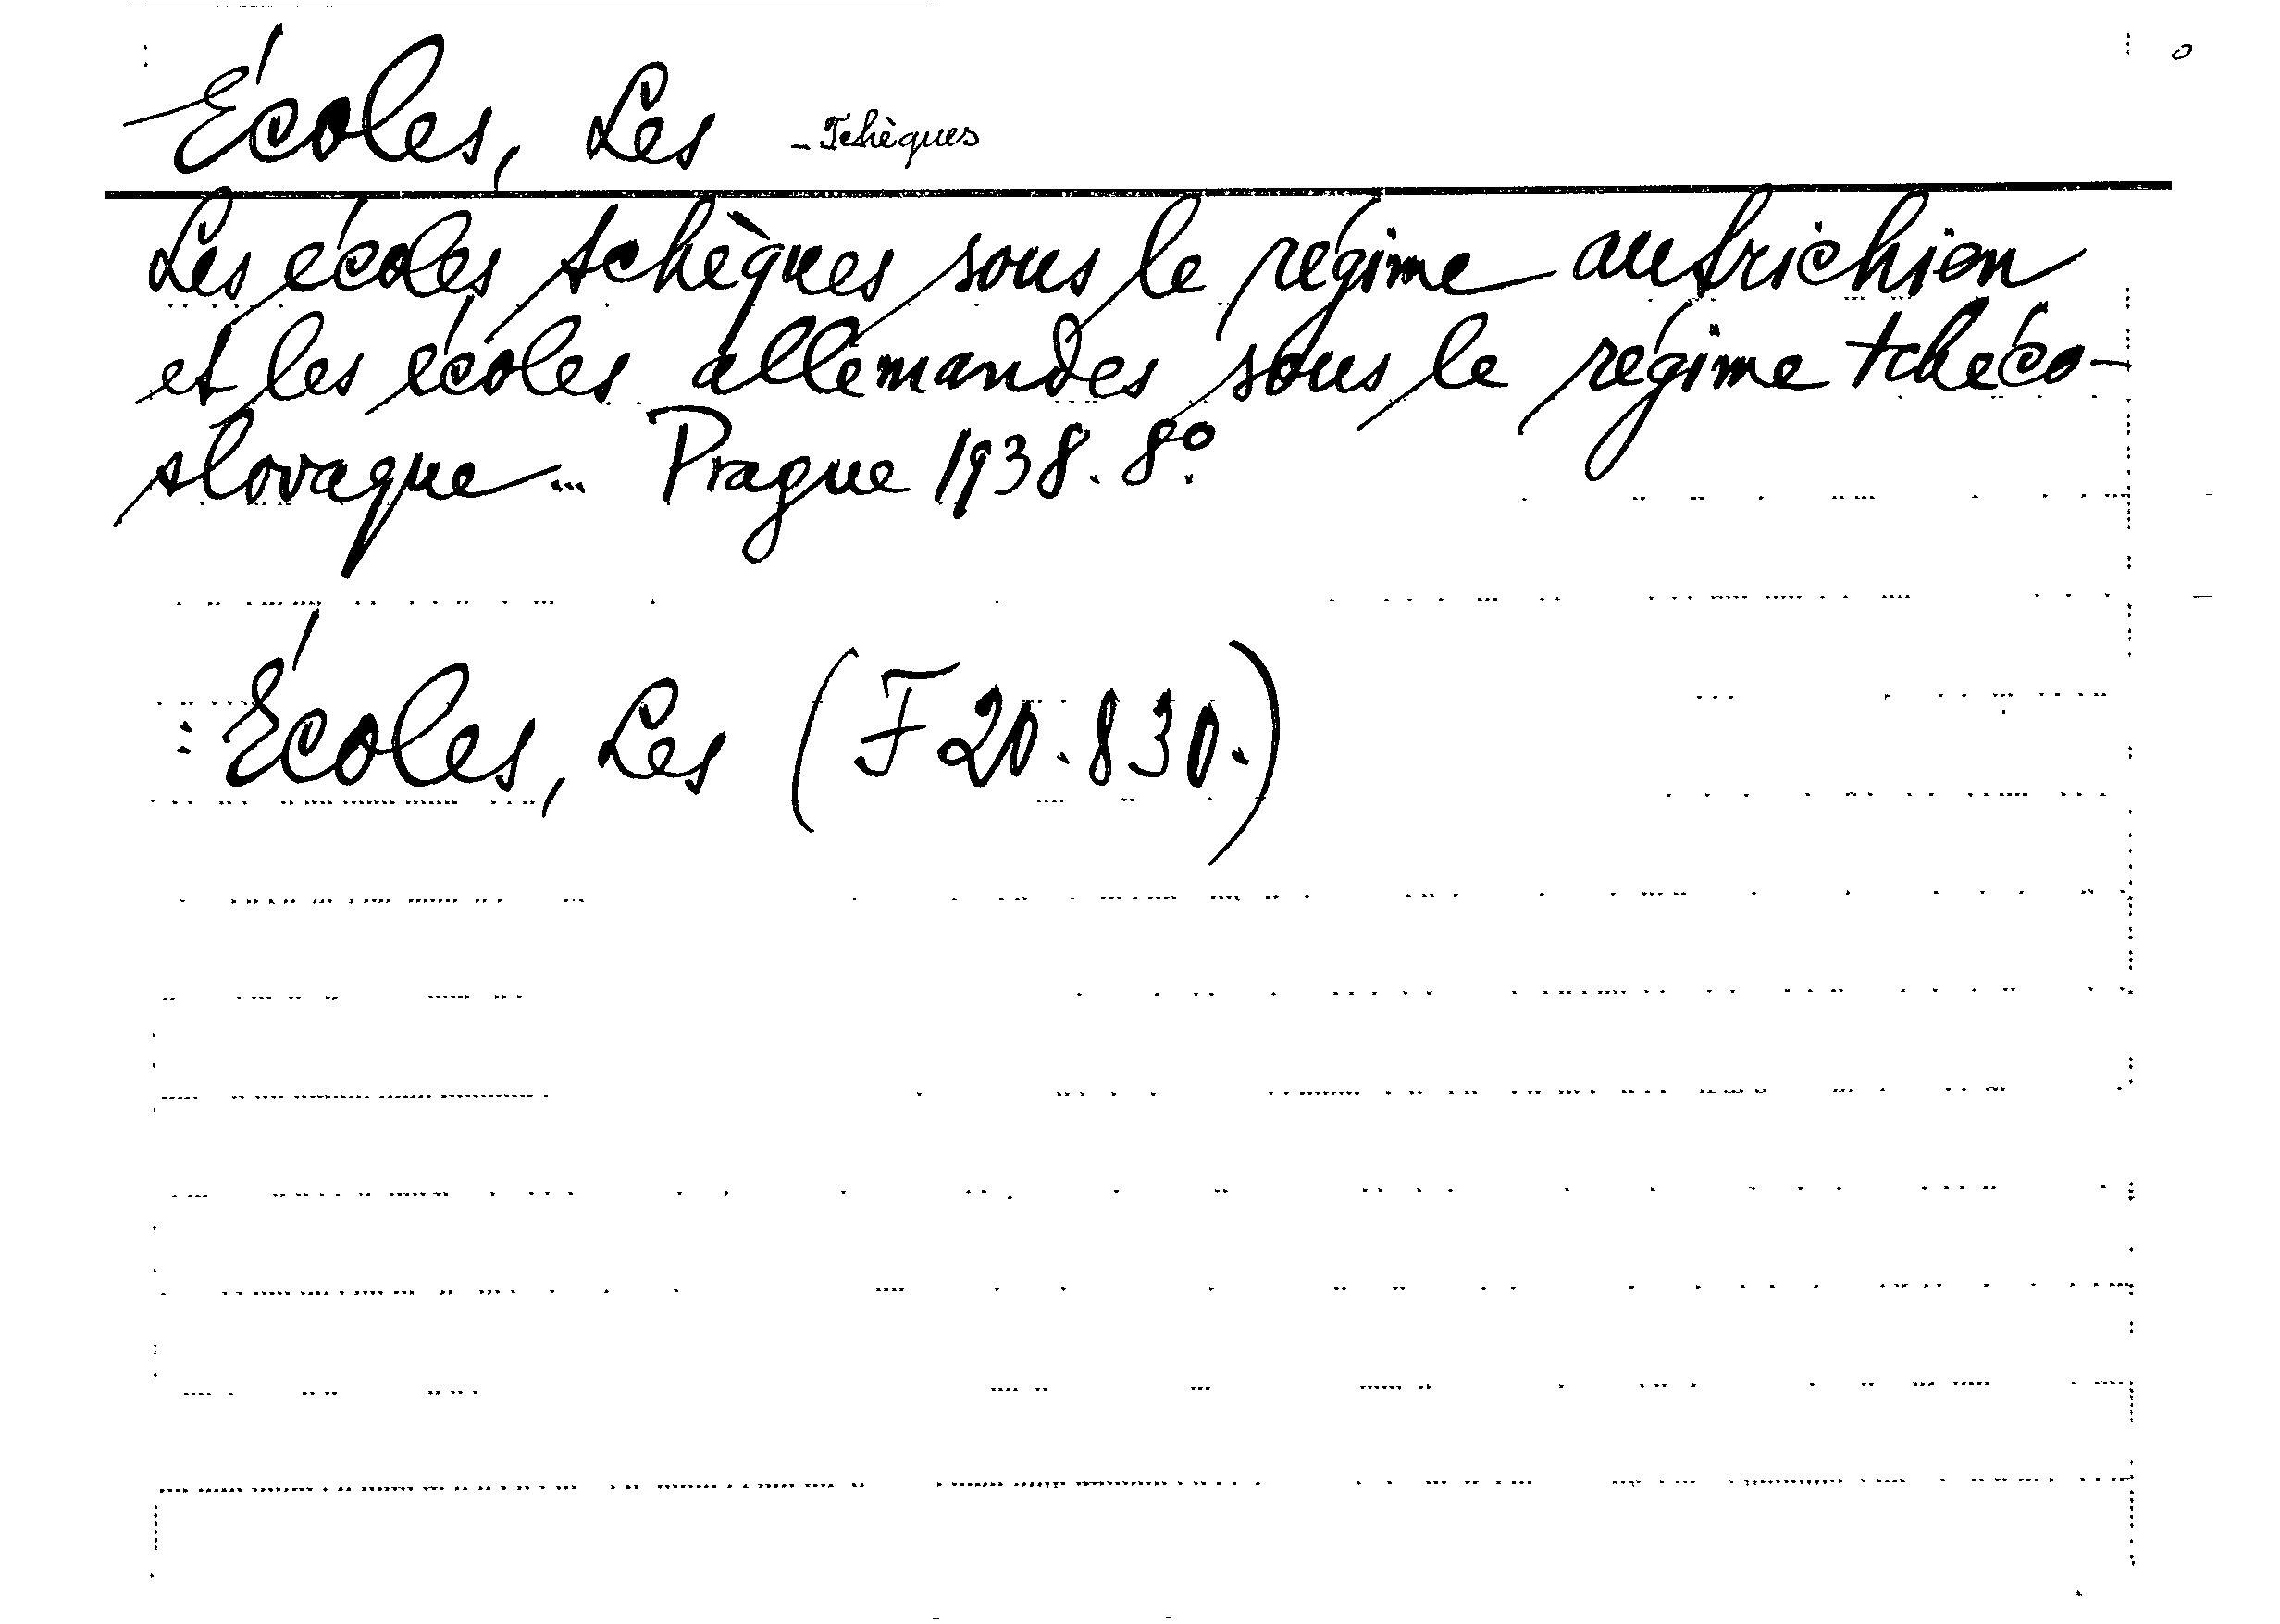 Écoles, Les - Tchèques
Les écoles tchèques sous le régime autrichien
et les écoles allemandes sous le régime tchéco-
slovaque... Prague 1938. 8º.
: Écoles, Les (F 20.830.)